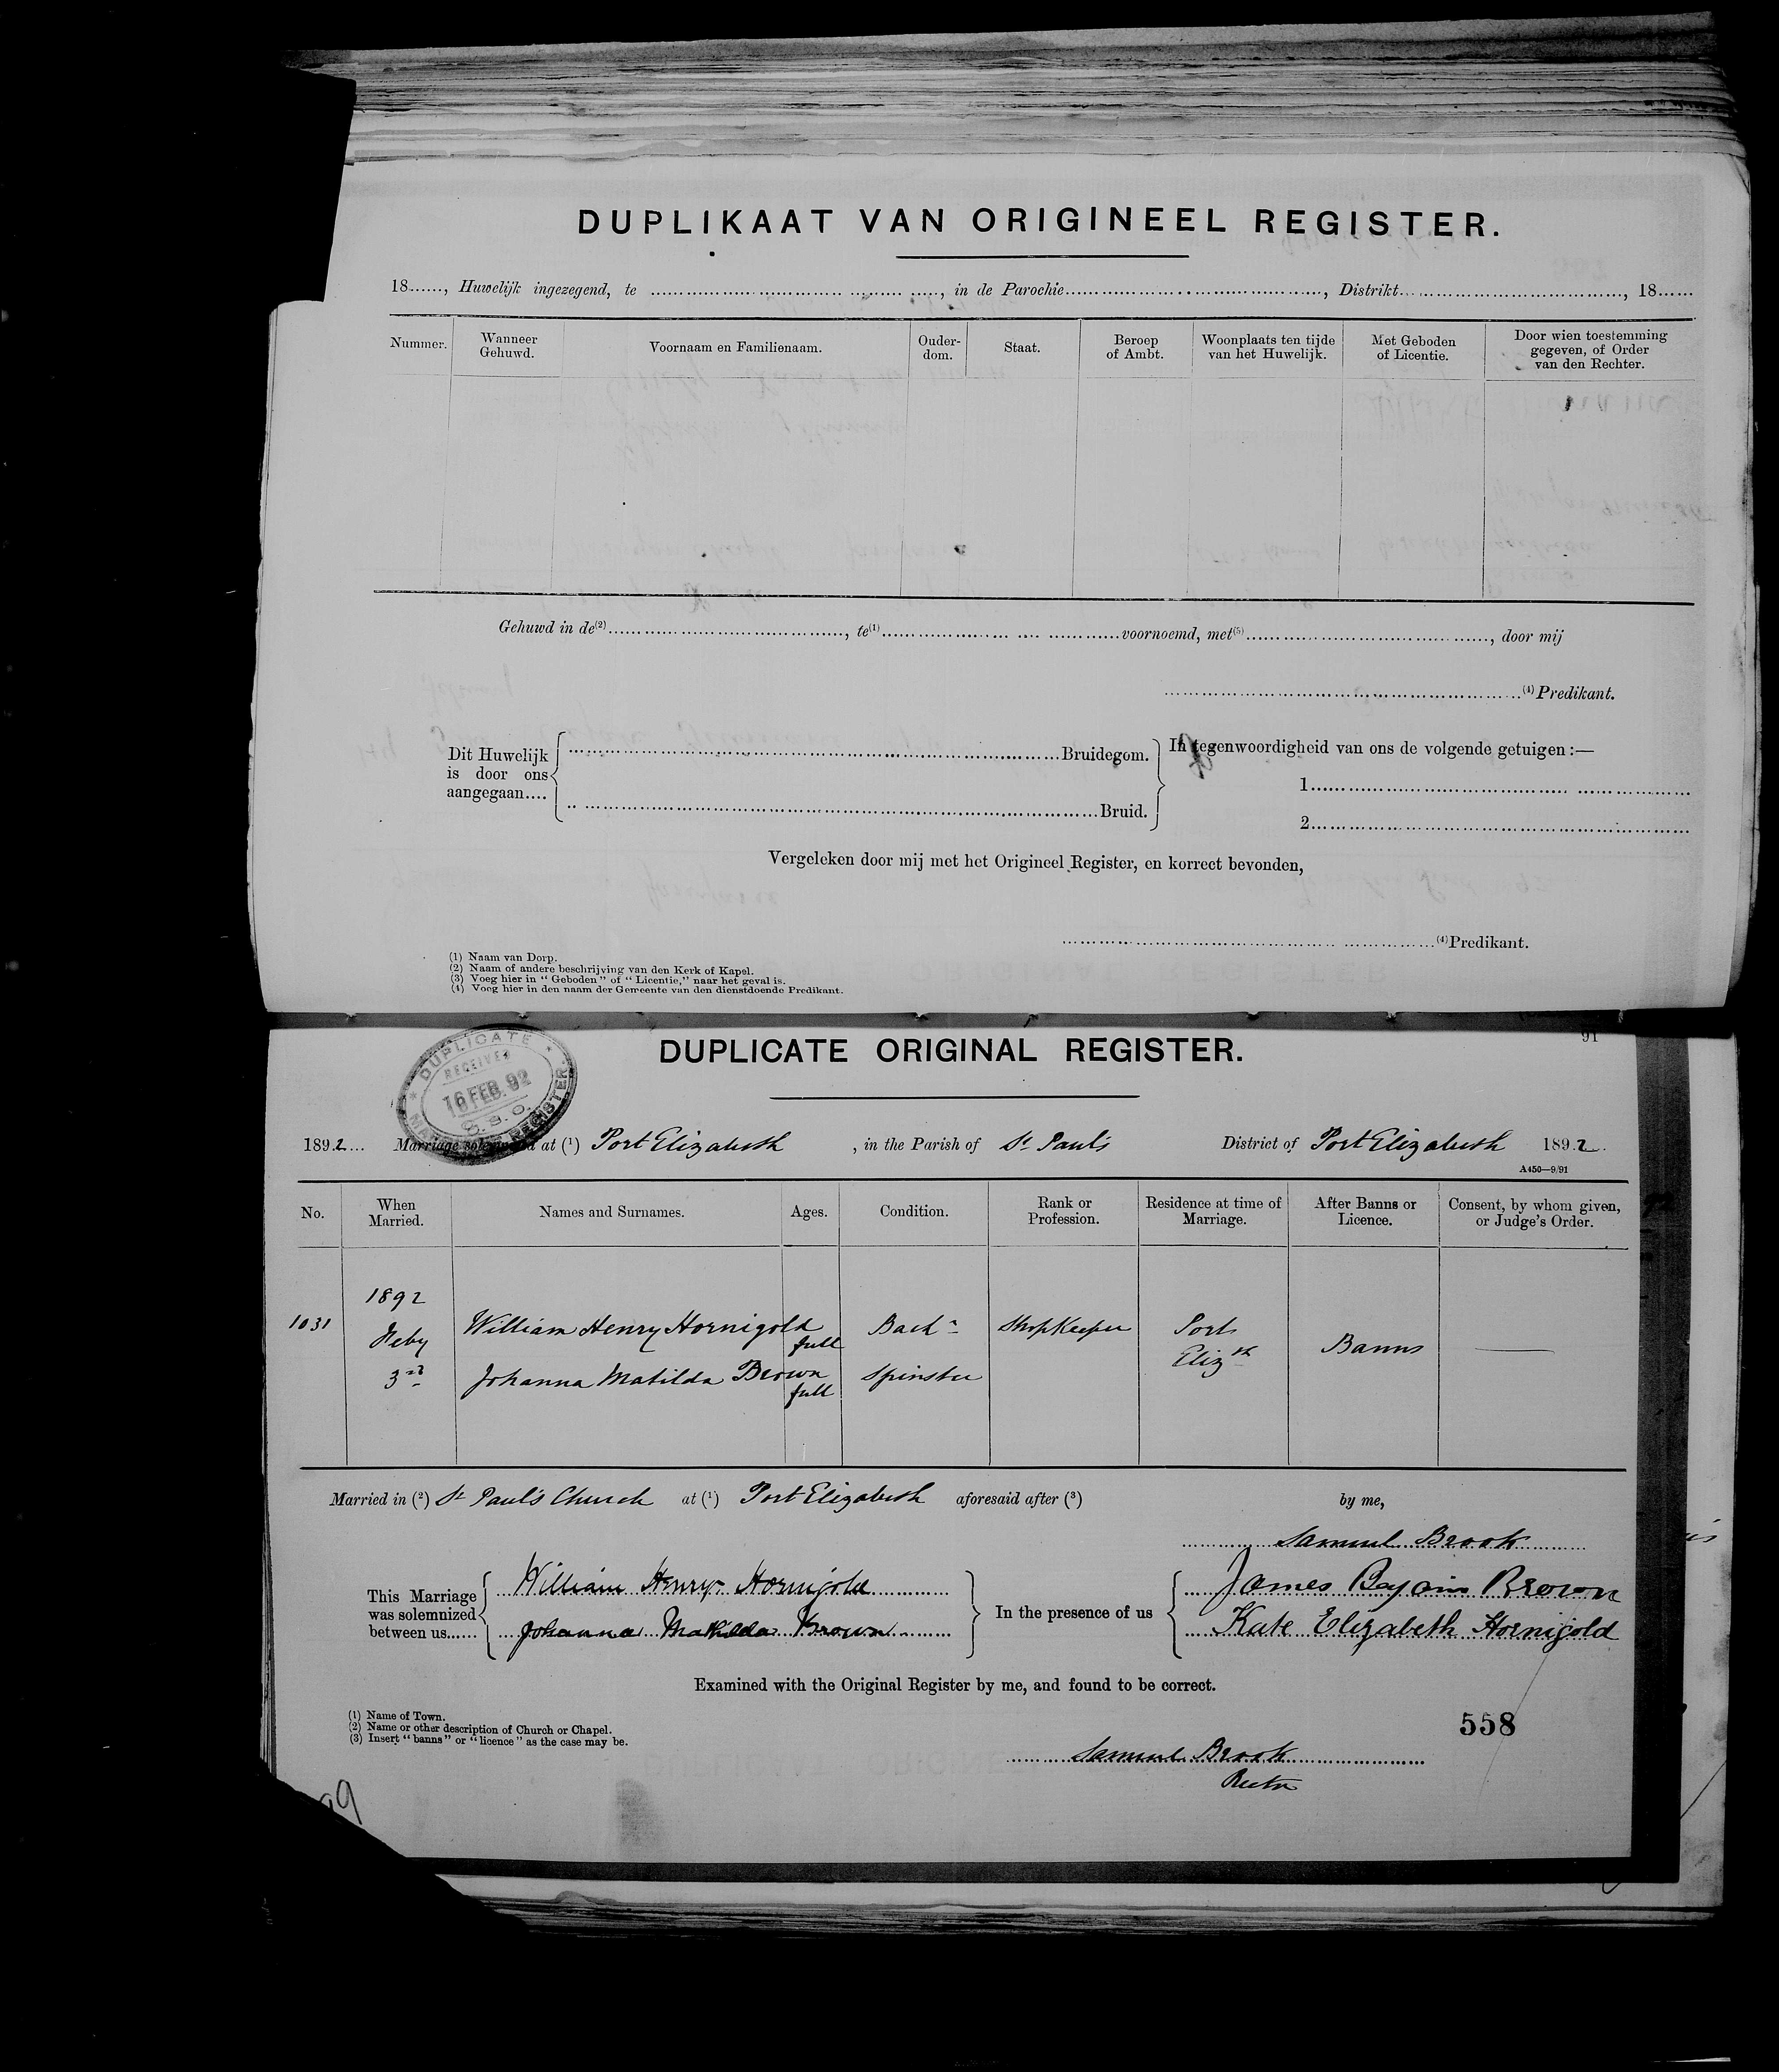 DUPLIKAAT VAN ORIGINEEL REGISTER.
18......, Huwelijk ingezegend, te ........................, in de Parochie........................, Distrikt........................, 18......
Nummer. Wanneer Gehuwd. Voornaam en Familienaam. Ouder-dom. Staat. Beroep of Ambt. Woonplaats ten tijde van het Huwelijk. Met Geboden of Licentie. Door wien toestemming gegeven, of Order van den Rechter.
Gehuwd in de(2)........................, te(1)........................voornoemd, met(5)........................, door mij
........................(4)Predikant.
Dit Huwelijk is door ons aangegaan....
........................Bruidegom.
........................Bruid.
In tegenwoordigheid van ons de volgende getuigen :—
1........................
2........................
Vergeleken door mij met het Origineel Register, en korrect bevonden,
........................(4)Predikant.
(1) Naam van Dorp.
(2) Naam of andere beschrijving van den Kerk of Kapel.
(3) Voeg hier in "Geboden" of "Licentie," naar het geval is.
(4) Voeg hier in den naam der Gemeente van den dienstdoende Predikant.
91
DUPLICATE
RECEIVED
16 FEB. 92
MARRIAGE REGISTER.
DUPLICATE ORIGINAL REGISTER.
1892.... Marriage solemnized at (1) Port Elizabeth , in the Parish of St Paul's District of Port Elizabeth 1892.
A450—9/91
No. When Married. Names and Surnames. Ages. Condition. Rank or Profession. Residence at time of Marriage. After Banns or Licence. Consent, by whom given, or Judge's Order.
1031 1892 Feby 3rd
William Henry Hornigold full Bachr Shopkeeper Port Elizth Banns ———
Johanna Matilda Brown full Spinster
Married in (2) St Paul's Church at (1) Port Elizabeth aforesaid after (3) by me,
Samuel Brook
This Marriage was solemnized between us......
William Henry Hornigold
Johanna Matilda Brown
In the presence of us
James Brown
Kate Elizabeth Hornigold
Examined with the Original Register by me, and found to be correct.
(1) Name of Town.
(2) Name or other description of Church or Chapel.
(3) Insert "banns" or "licence" as the case may be.
558
Samuel Brook
Rector